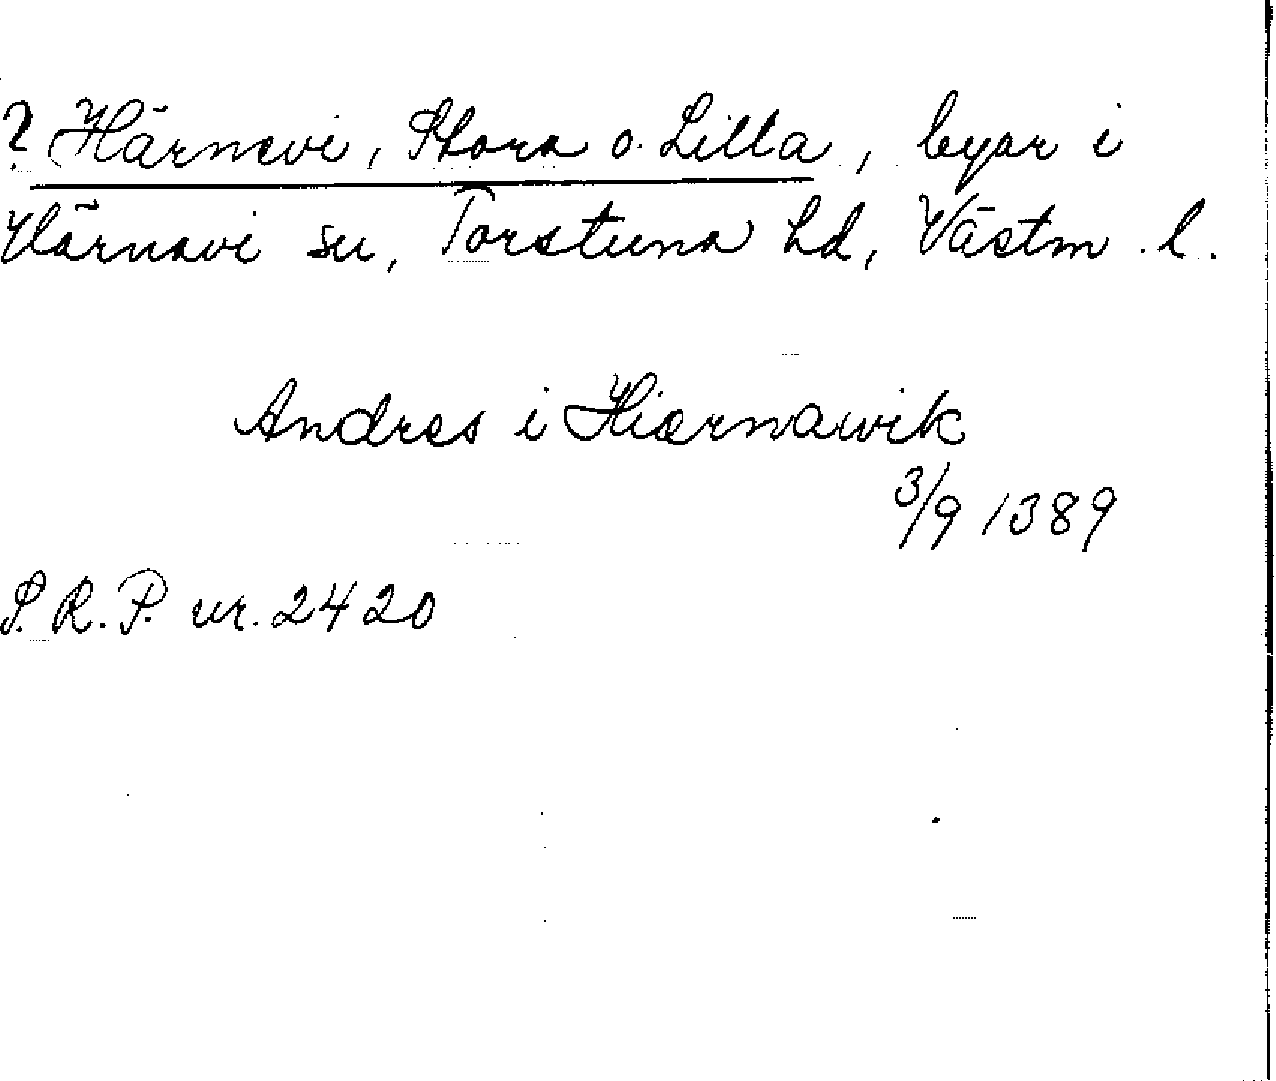 ? Härnevi, Stora o. Lilla, byar i
Härnevi sn, Torstuna hd, Västm. l.
Andres i Hiærnawik
3/9 1389
S.R.P. nr. 2420